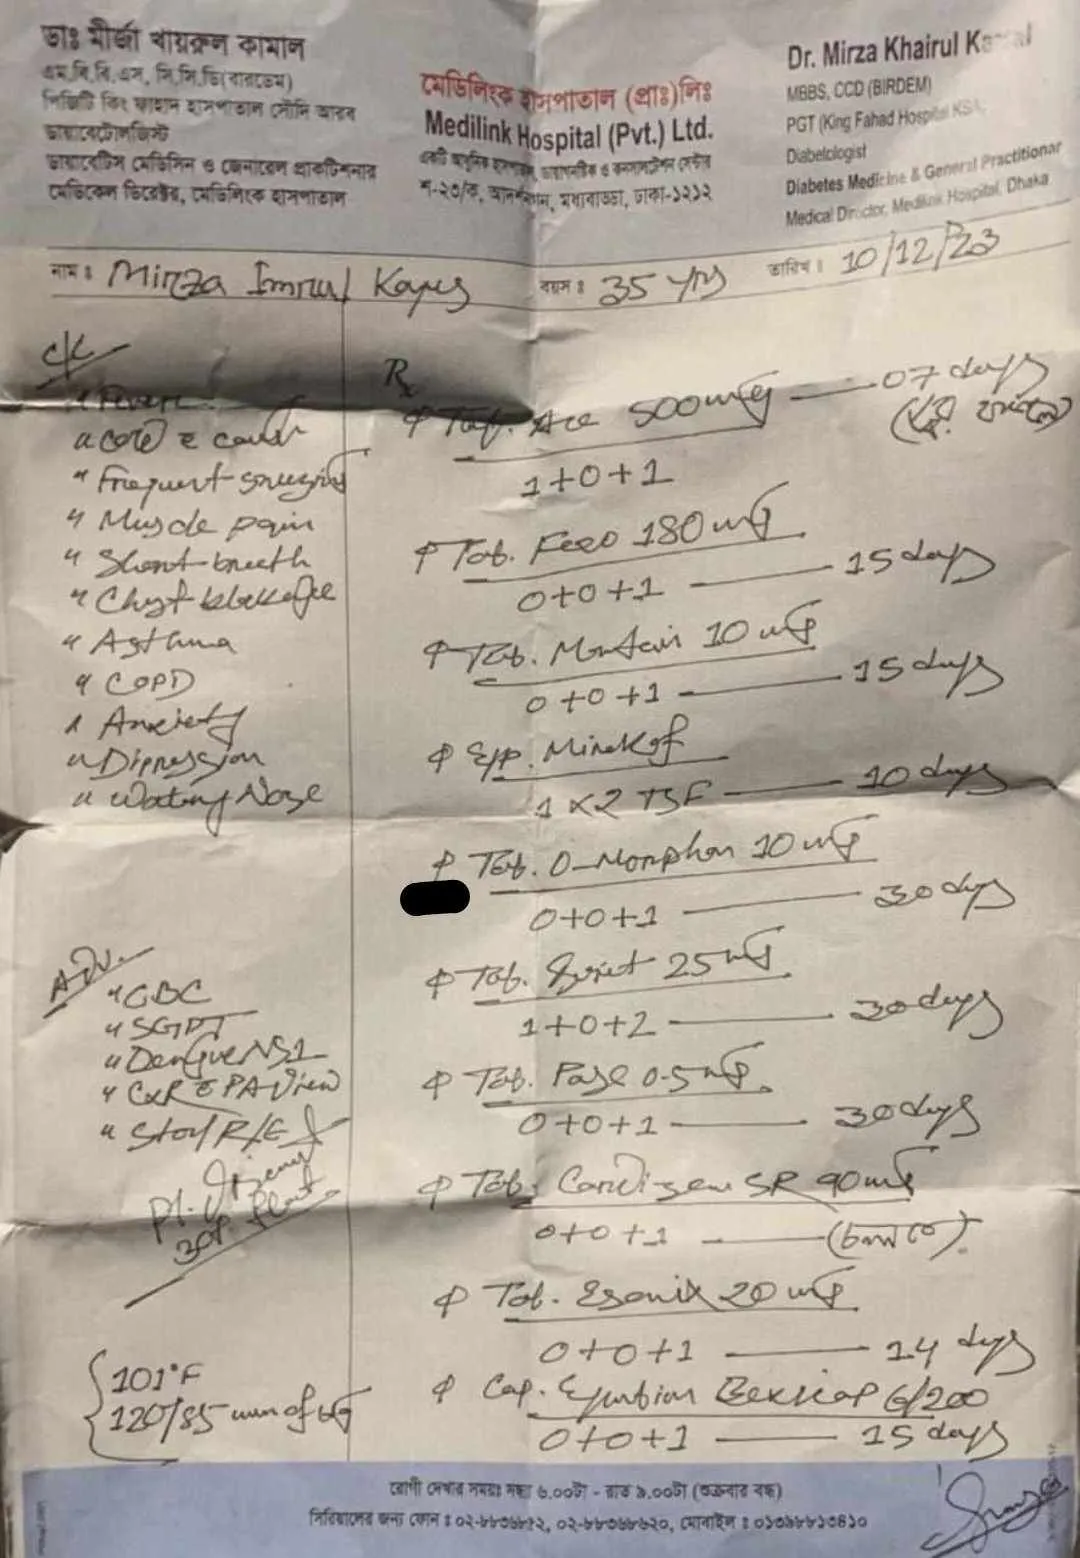 ডাঃ মীর্জা খায়রুল কামাল
এম.বি.বি.এস, সি.সি.ডি(বারডেম)
পিজিটি কিং ফাহাদ হাসপাতাল সৌদি আরব
ডায়াবেটোলজিস্ট
ডায়াবেটিস মেডিসিন ও জেনারেল প্রাকটিশনার
মেডিকেল ডিরেক্টর, মেডিলিংক হাসপাতাল
মেডিলিংক হাসপাতাল (প্রাঃ)লিঃ
Medilink Hospital (Pvt.) Ltd.
একটি আধুনিক হাসপাতাল, ডায়াগনষ্টিক ও কনসালটেশন সেন্টার
শ-২৩/ক, মধ্যবাড্ডা, ঢাকা-১২১২
Dr. Mirza Khairul Kamal
MBBS, CCD (BIRDEM)
PGT (King Fahad Hospital KSA,
Diabetologist
Diabetes Medicine & General Practitionar
Medical Director, Medilink Hospital, Dhaka
নাম ঃ Mirza Imrul Kayes বয়স ঃ 35 yrs তারিখ ঃ 10/12/23
C/C
" Fever
" Cold c cough
" Frequent sneezing
" Muscle pain
" Short breath
" Chest
" Asthma
" COPD
" Anxiety
" Dipression
" Nose
Adv.
" CBC
" SGPT
" Dengue NS1
" CXR c P/A View
" R/E
Pt.
101°F
120/85 mm of Hg
Rx
Tab. Ace 500 mg — 07 days
1+0+1
Tab. Fexo 180 mg
0+0+1 — 15 days
Tab. Montair 10 mg
0+0+1 — 15 days
Syp.
1 x 2 TSF — 10 days
Tab. 10 mg
0+0+1 — 30 days
Tab. 25 mg
1+0+2 — 30 days
Tab. Pase 0.5 mg
0+0+1 — 30 days
Tab. Cardizem SR 90 mg
0+0+1 — (চলবে)
Tab. Esonix 20 mg
0+0+1 — 14 days
Cap. Bexicap 6/200
0+0+1 — 15 days
রোগী দেখার সময়ঃ সন্ধ্যা ৬.০০টা - রাত ৯.০০টা (শুক্রবার বন্ধ)
সিরিয়ালের জন্য ফোন ঃ মোবাইল ঃ